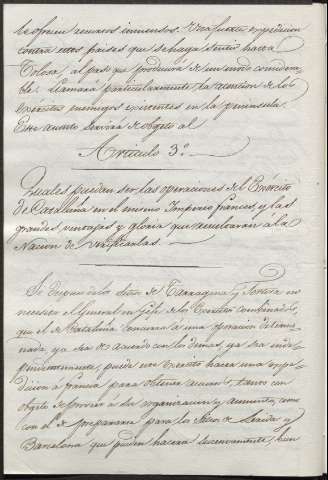 le ofrecen recursos inmensos. Una fuerte expedicion
contra estos paises que se haga sentir hacia
Tolosa, al paso que producirá de un modo considera-
ble. Llamará particularmente la atencion de los
Exércitos enemigos existentes en la peninsula.
Este asunto servirá de objeto al
Articulo 3.º
Quales puedan ser las operaciones del Exército
de Cataluña en el mismo Imperio frances, y las
grandes ventajas y gloria que resultarán á la
Nacion de verificarlas.
Si despues de los sitios de Tarragona y Tortosa no
necesita el General en Gefe de los Exércitos combinados,
que el de Cataluña concurra á una operacion determi-
nada, ya sea de acuerdo con los demas, ya sea inde-
pendientemente, puede este Exército hacer una expe-
dicion á Francia para obtener recursos, tanto con
objeto de proveer á su organizacion y aumento, como
con el de prepararse para los Sitios de Lerida y
Barcelona que pueden hacerse succesivamente, bien